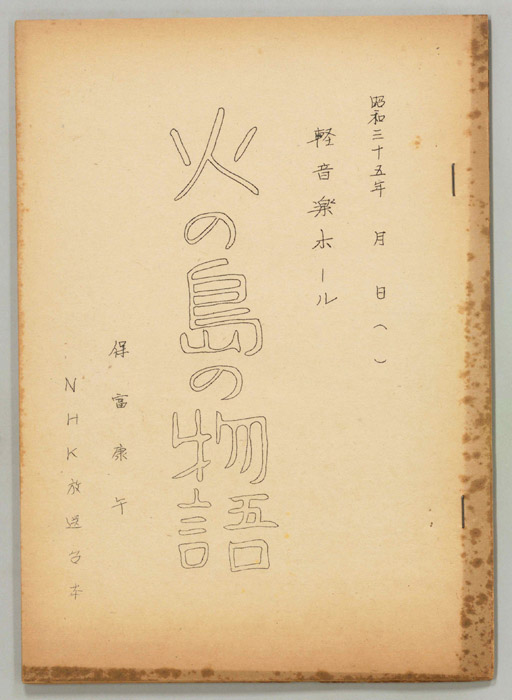 昭和三十五年 月 日( )
軽音楽ホール
火の島の物語
保富康午
NHK放送台本